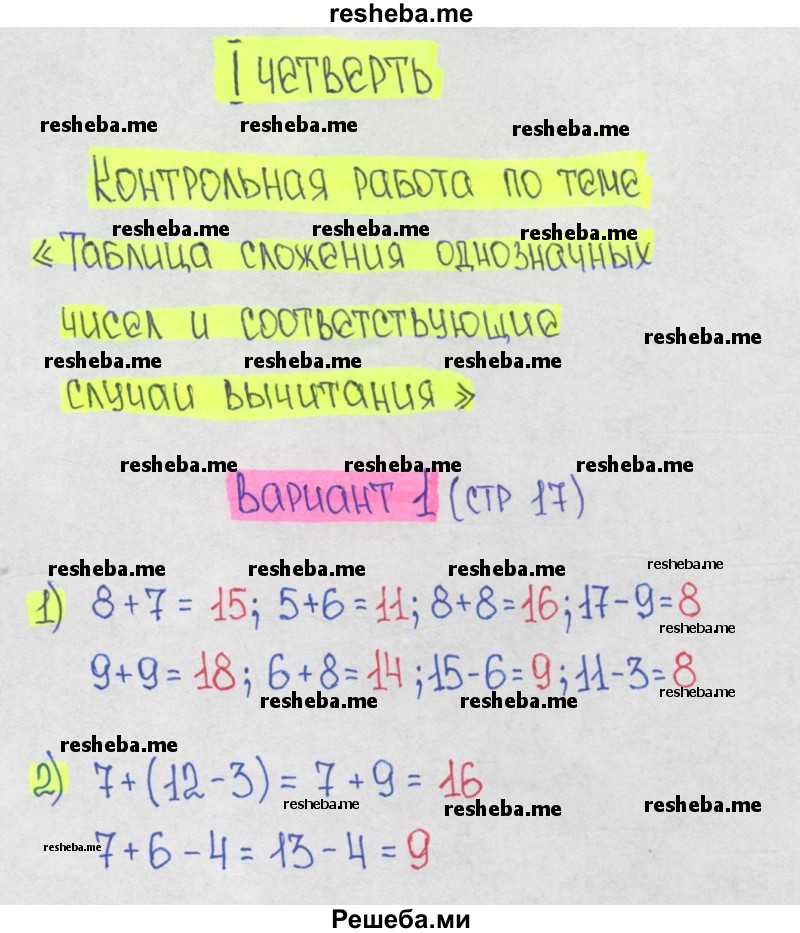 resheba.me
I четверть
resheba.me resheba.me resheba.me
Контрольная работа по теме
resheba.me resheba.me resheba.me
«Таблица сложения однозначных
чисел и соответствующие
resheba.me
resheba.me resheba.me resheba.me
случаи вычитания»
resheba.me resheba.me resheba.me
Вариант 1 (стр 17)
resheba.me resheba.me resheba.me resheba.me
1) 8+7=15; 5+6=11; 8+8=16; 17-9=8
resheba.me
9+9=18; 6+8=14; 15-6=9; 11-3=8
resheba.me resheba.me resheba.me
resheba.me
2) 7+(12-3)=7+9=16
resheba.me resheba.me resheba.me
resheba.me
7+6-4=13-4=9
Решеба.ми